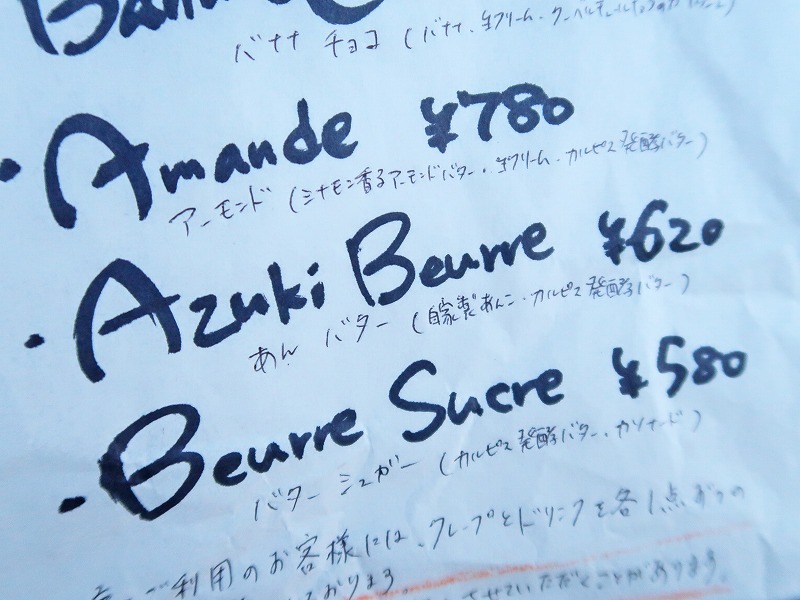 バナナ チョコ (バナナ、生クリーム・クーベルチュール
・Amande ¥780
アーモンド (シナモン香るアーモンドバター・生クリーム・カルピス発酵バター)
・Azuki Beurre ¥620
あん バター (自家製あんこ・カルピス発酵バター)
・Beurre Sucre ¥580
バター シュガー (カルピス発酵バター、カソナード)
ご利用のお客様には、クレープとドリンクを各1点ずつの
おります。
させていただくことがあります。